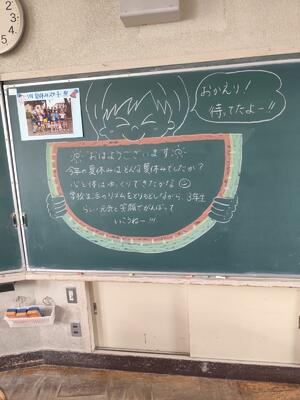 おかえり!
待ってたよー!!
おはようございます
今年の夏休みはどんな夏休みでしたか?
心と体はゆっくりできたかな☺
学校生活のリズムをとりもどしながら、3年生
らしい元気と笑顔でがんばって
いこうねー!!!
2
3
4
5